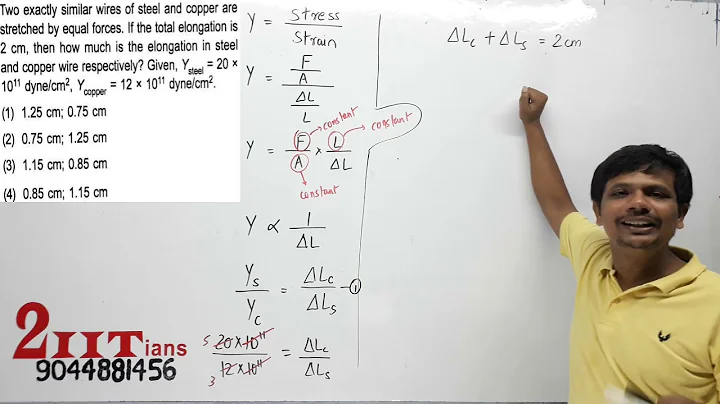 Two exactly similar wires of steel and copper are
stretched by equal forces. If the total elongation is
2 cm, then how much is the elongation in steel
and copper wire respectively? Given, Y_steel = 20 ×
10¹¹ dyne/cm², Y_copper = 12 × 10¹¹ dyne/cm².
(1) 1.25 cm; 0.75 cm
(2) 0.75 cm; 1.25 cm
(3) 1.15 cm; 0.85 cm
(4) 0.85 cm; 1.15 cm
Y = Stress / Strain
Y = (F / A) / (ΔL / L)
constant
constant
Y = F / A × L / ΔL
constant
Y ∝ 1 / ΔL
Y_s / Y_c = ΔL_c / ΔL_s – ①
5 20 × 10¹¹ / 3 12 × 10¹¹ = ΔL_c / ΔL_s
ΔL_c + ΔL_s = 2cm
2IITians
9044881456